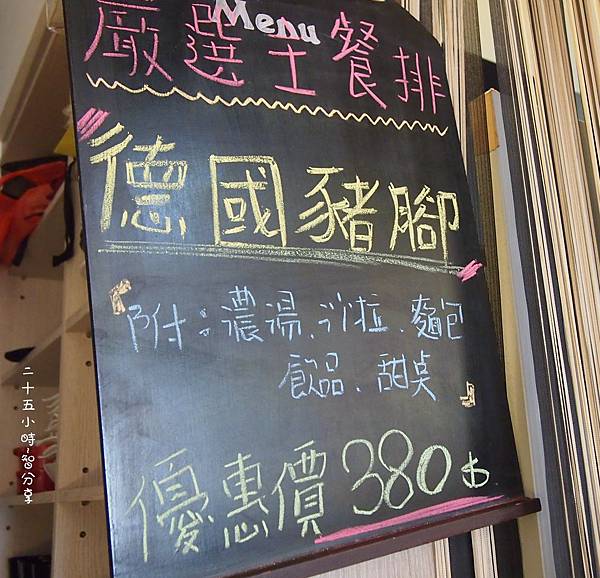 Menu
嚴選主餐排
德國豬腳
附：濃湯、沙拉、麵包
飲品、甜桌
優惠價380元
二十五小時~智分享